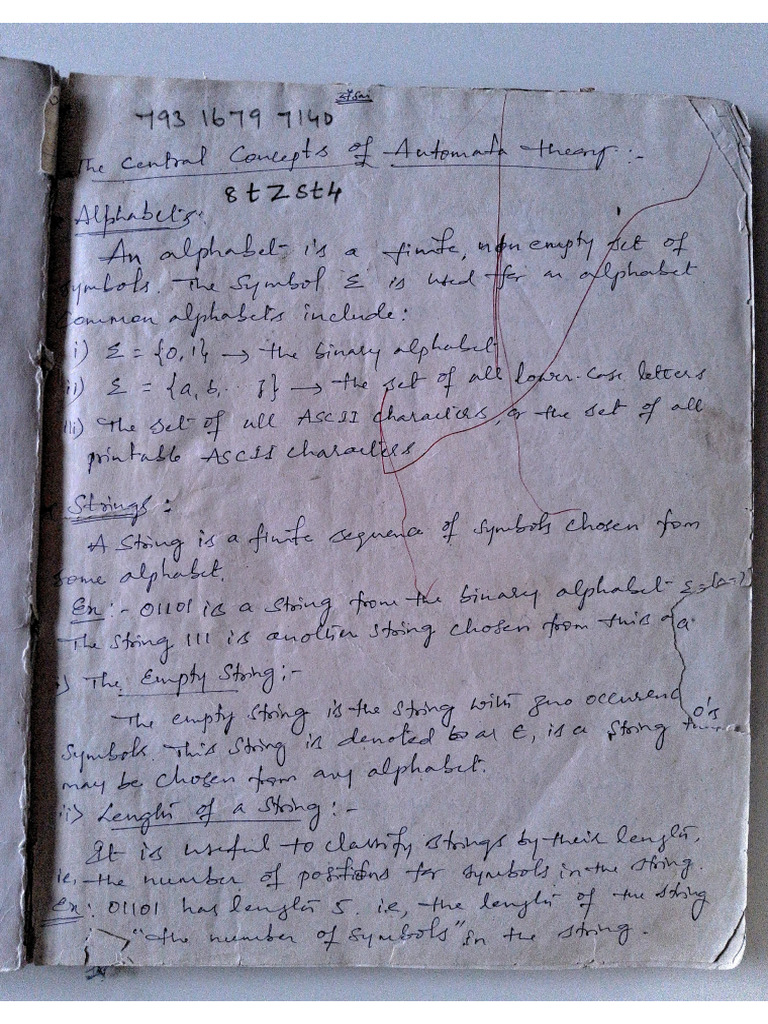 793 1679 7140
The Central Concepts of Automata theory :-
8tZSt4
Alphabets.
An alphabet is a finite, non empty set of
symbols. The symbol 'Σ' is used for an alphabet
Common alphabets include:
i) Σ = {0,1} → the binary alphabet
ii) Σ = {a, b, .. z} → the set of all lower-case letters
iii) The set of all ASCII characters, or the set of all
printable ASCII characters
Strings :
A String is a finite sequence of symbols chosen from
some alphabet.
Ex :- 01101 is a string from the binary alphabet
The string 111 is another string chosen from this
i) The Empty String :-
The empty string is the string with zero
symbols. This string is denoted by ∈, is a string
may be chosen from any alphabet.
ii) Length of a String : -
It is useful to classify strings by their length,
ie, the number of positions for symbols in the string.
Ex : 01101 has length 5. i.e, the length of the string
"the number of symbols" in the string.